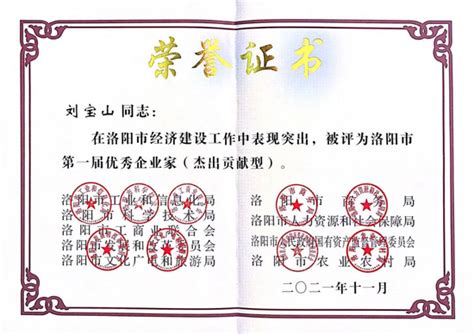 荣誉证书
刘宝山 同志：
在洛阳市经济建设工作中表现突出，被评为洛阳市
第一届优秀企业家（杰出贡献型）。
洛阳市工业和信息化局
洛阳市科学技术局
洛阳市工商业联合会
洛阳市发展和改革委员会
洛阳市文化广电和旅游局
洛阳市财政局
洛阳市人力资源和社会保障局
洛阳市人民政府国有资产监督管理委员会
洛阳市农业农村局
二〇二一年十一月